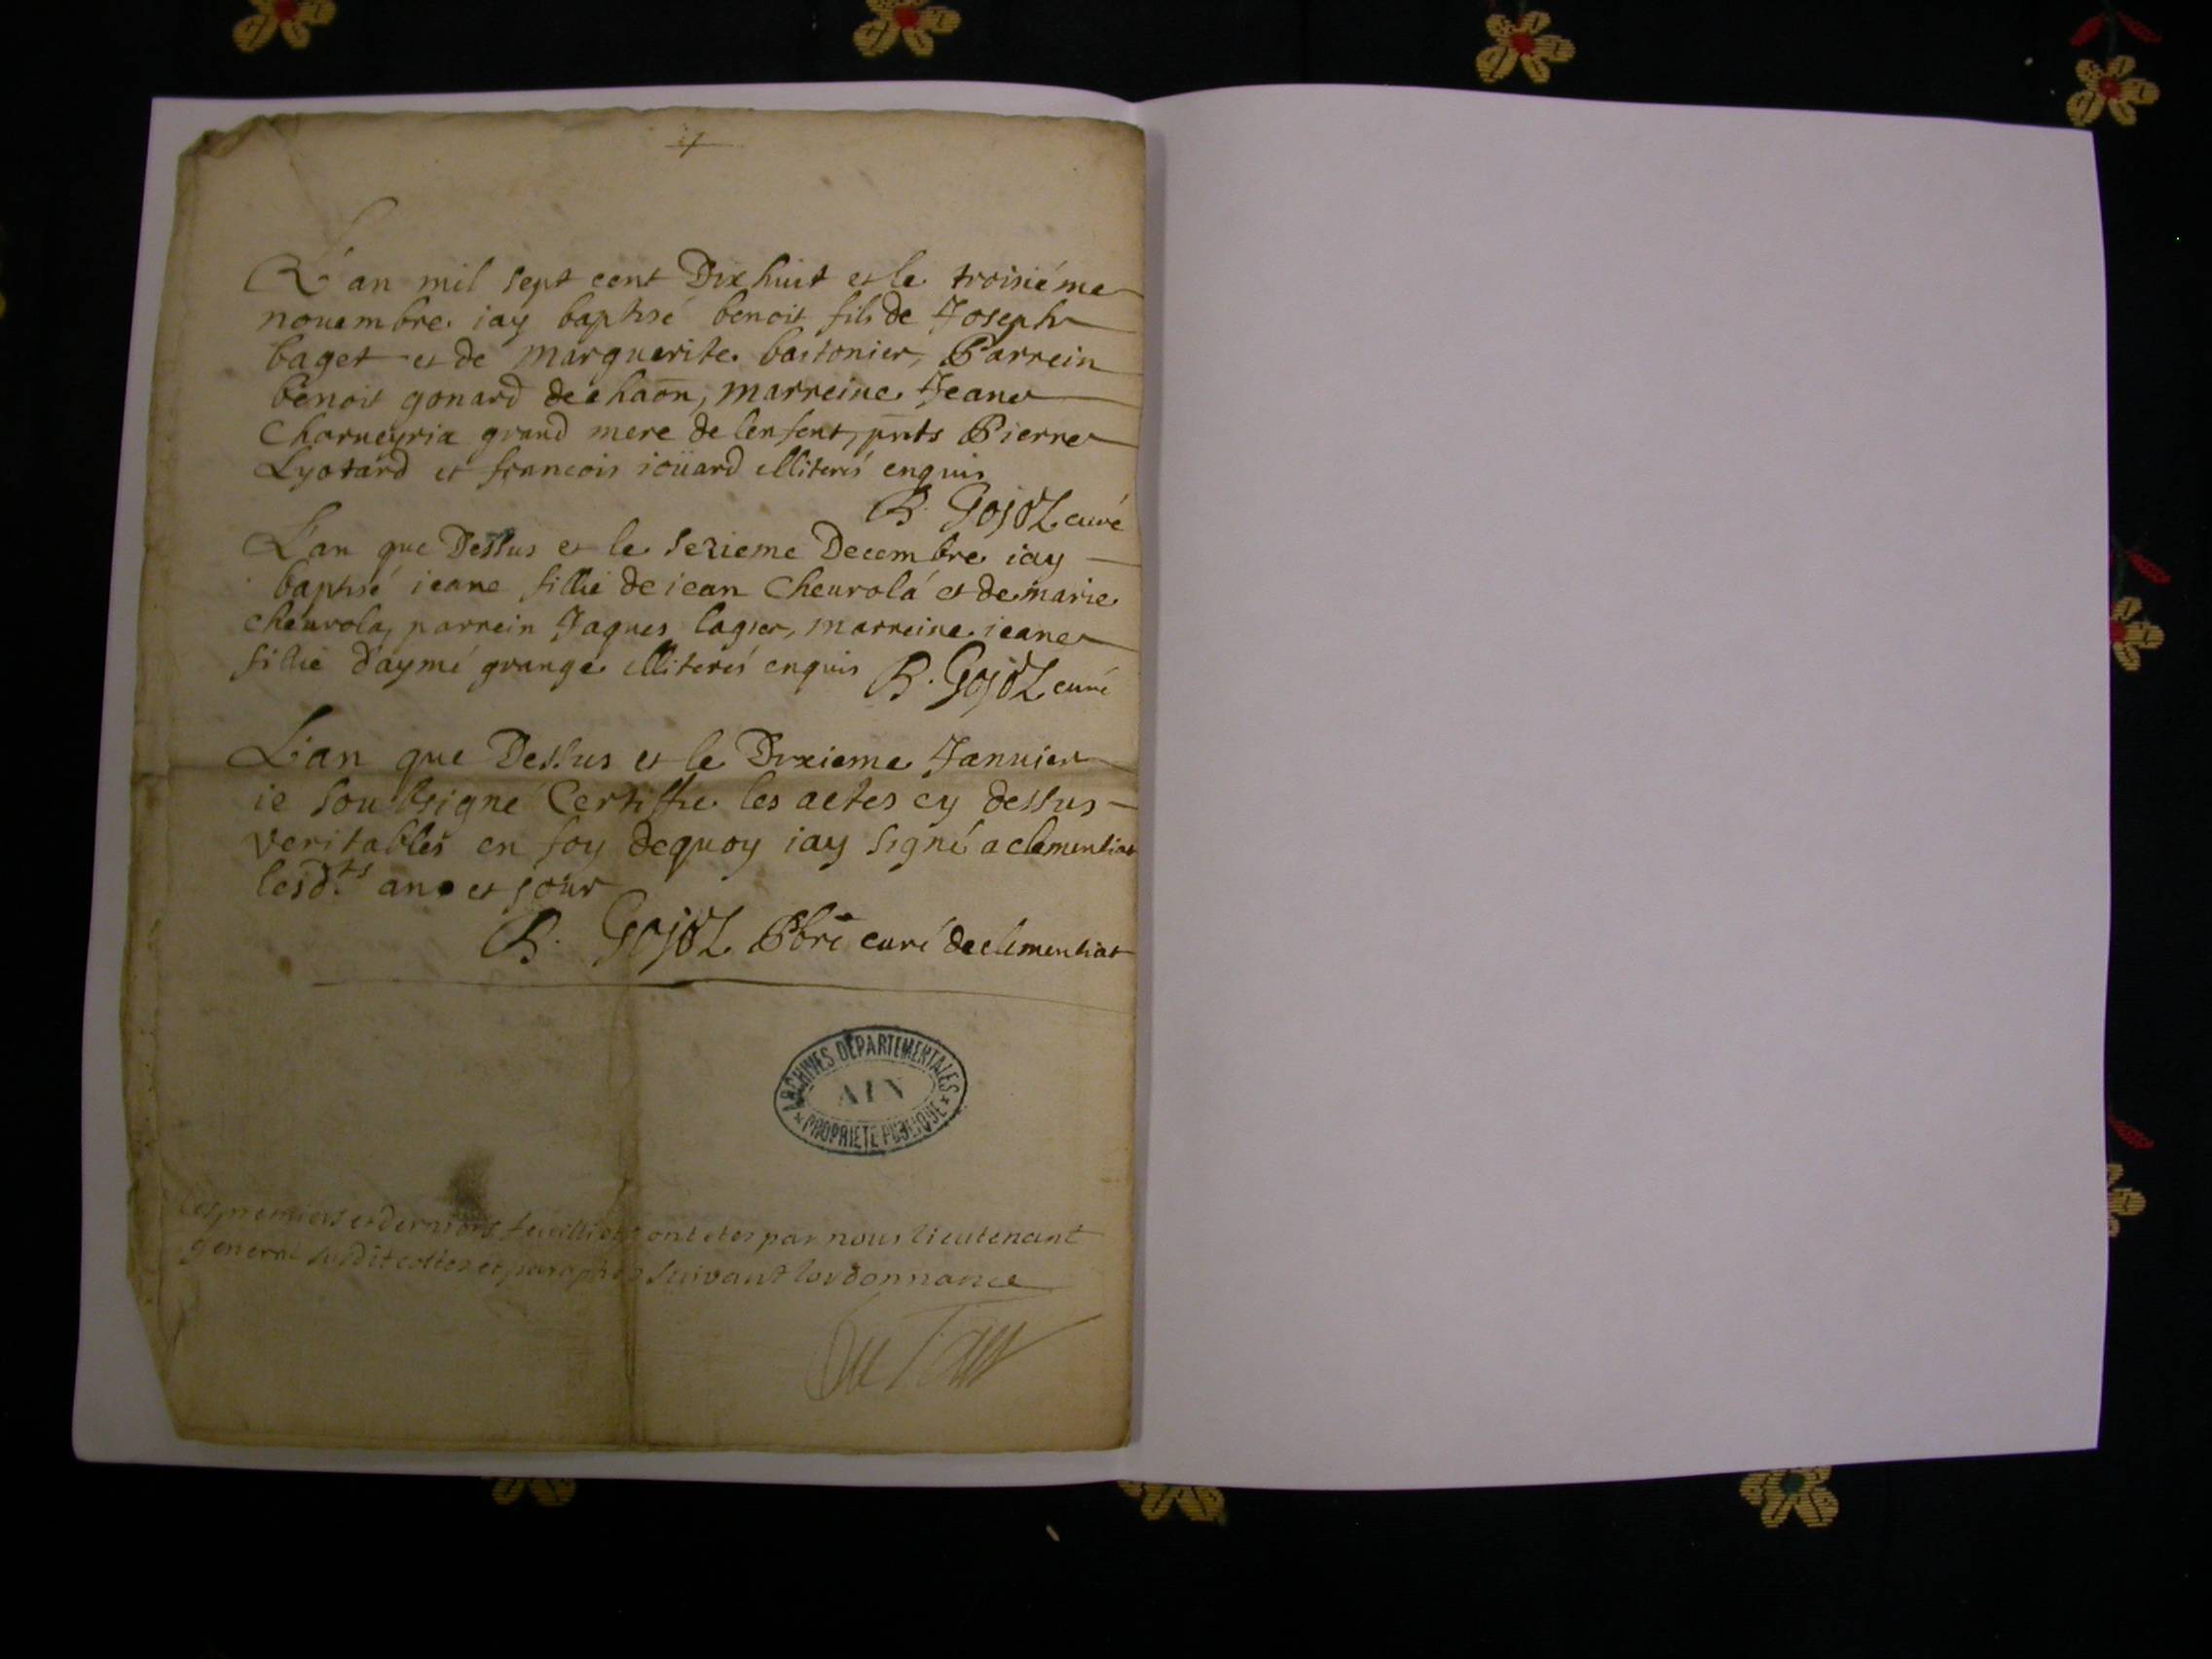 L'an mil sept cent Dix huit et le troisiéme
nouembre iay baptisé benoit fils de Joseph
baget et de marguerite bastonier, Parrein
benoit gonard de chaon, marreine Jeane
Charneyria grand mere de lenfent, pnts Pierre
Lyotard et francois ioüard elliterés enquis
B. Gojoz curé
L'an que Dessus et le sezieme Decembre iay
baptisé ieane fillie de iean Cheurola et de marie
cheurola, parrein Jaques lagier, marreine ieane
fillie d'aymé grange elliterés enquis B. Gojoz curé
L'an que Dessus et le Dixieme Januier
ie soubsigné Certiffie les actes cy dessus
veritables en foy dequoy iay signé a clementiat
lesd.ts an et jour
B. Gojoz Pbre curé de clementiat
ARCHIVES DEPARTEMENTALES
AIN
PROPRIETE PUBLIQUE
Ces premiers et derniers feuilliets ont etes par nous lieutenant
general susdit cottes et paraphes suivant lordonnance